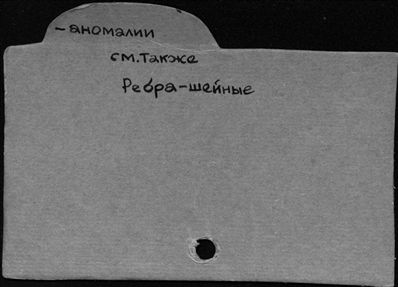 -аномалии
см.также
Ребра-шейные